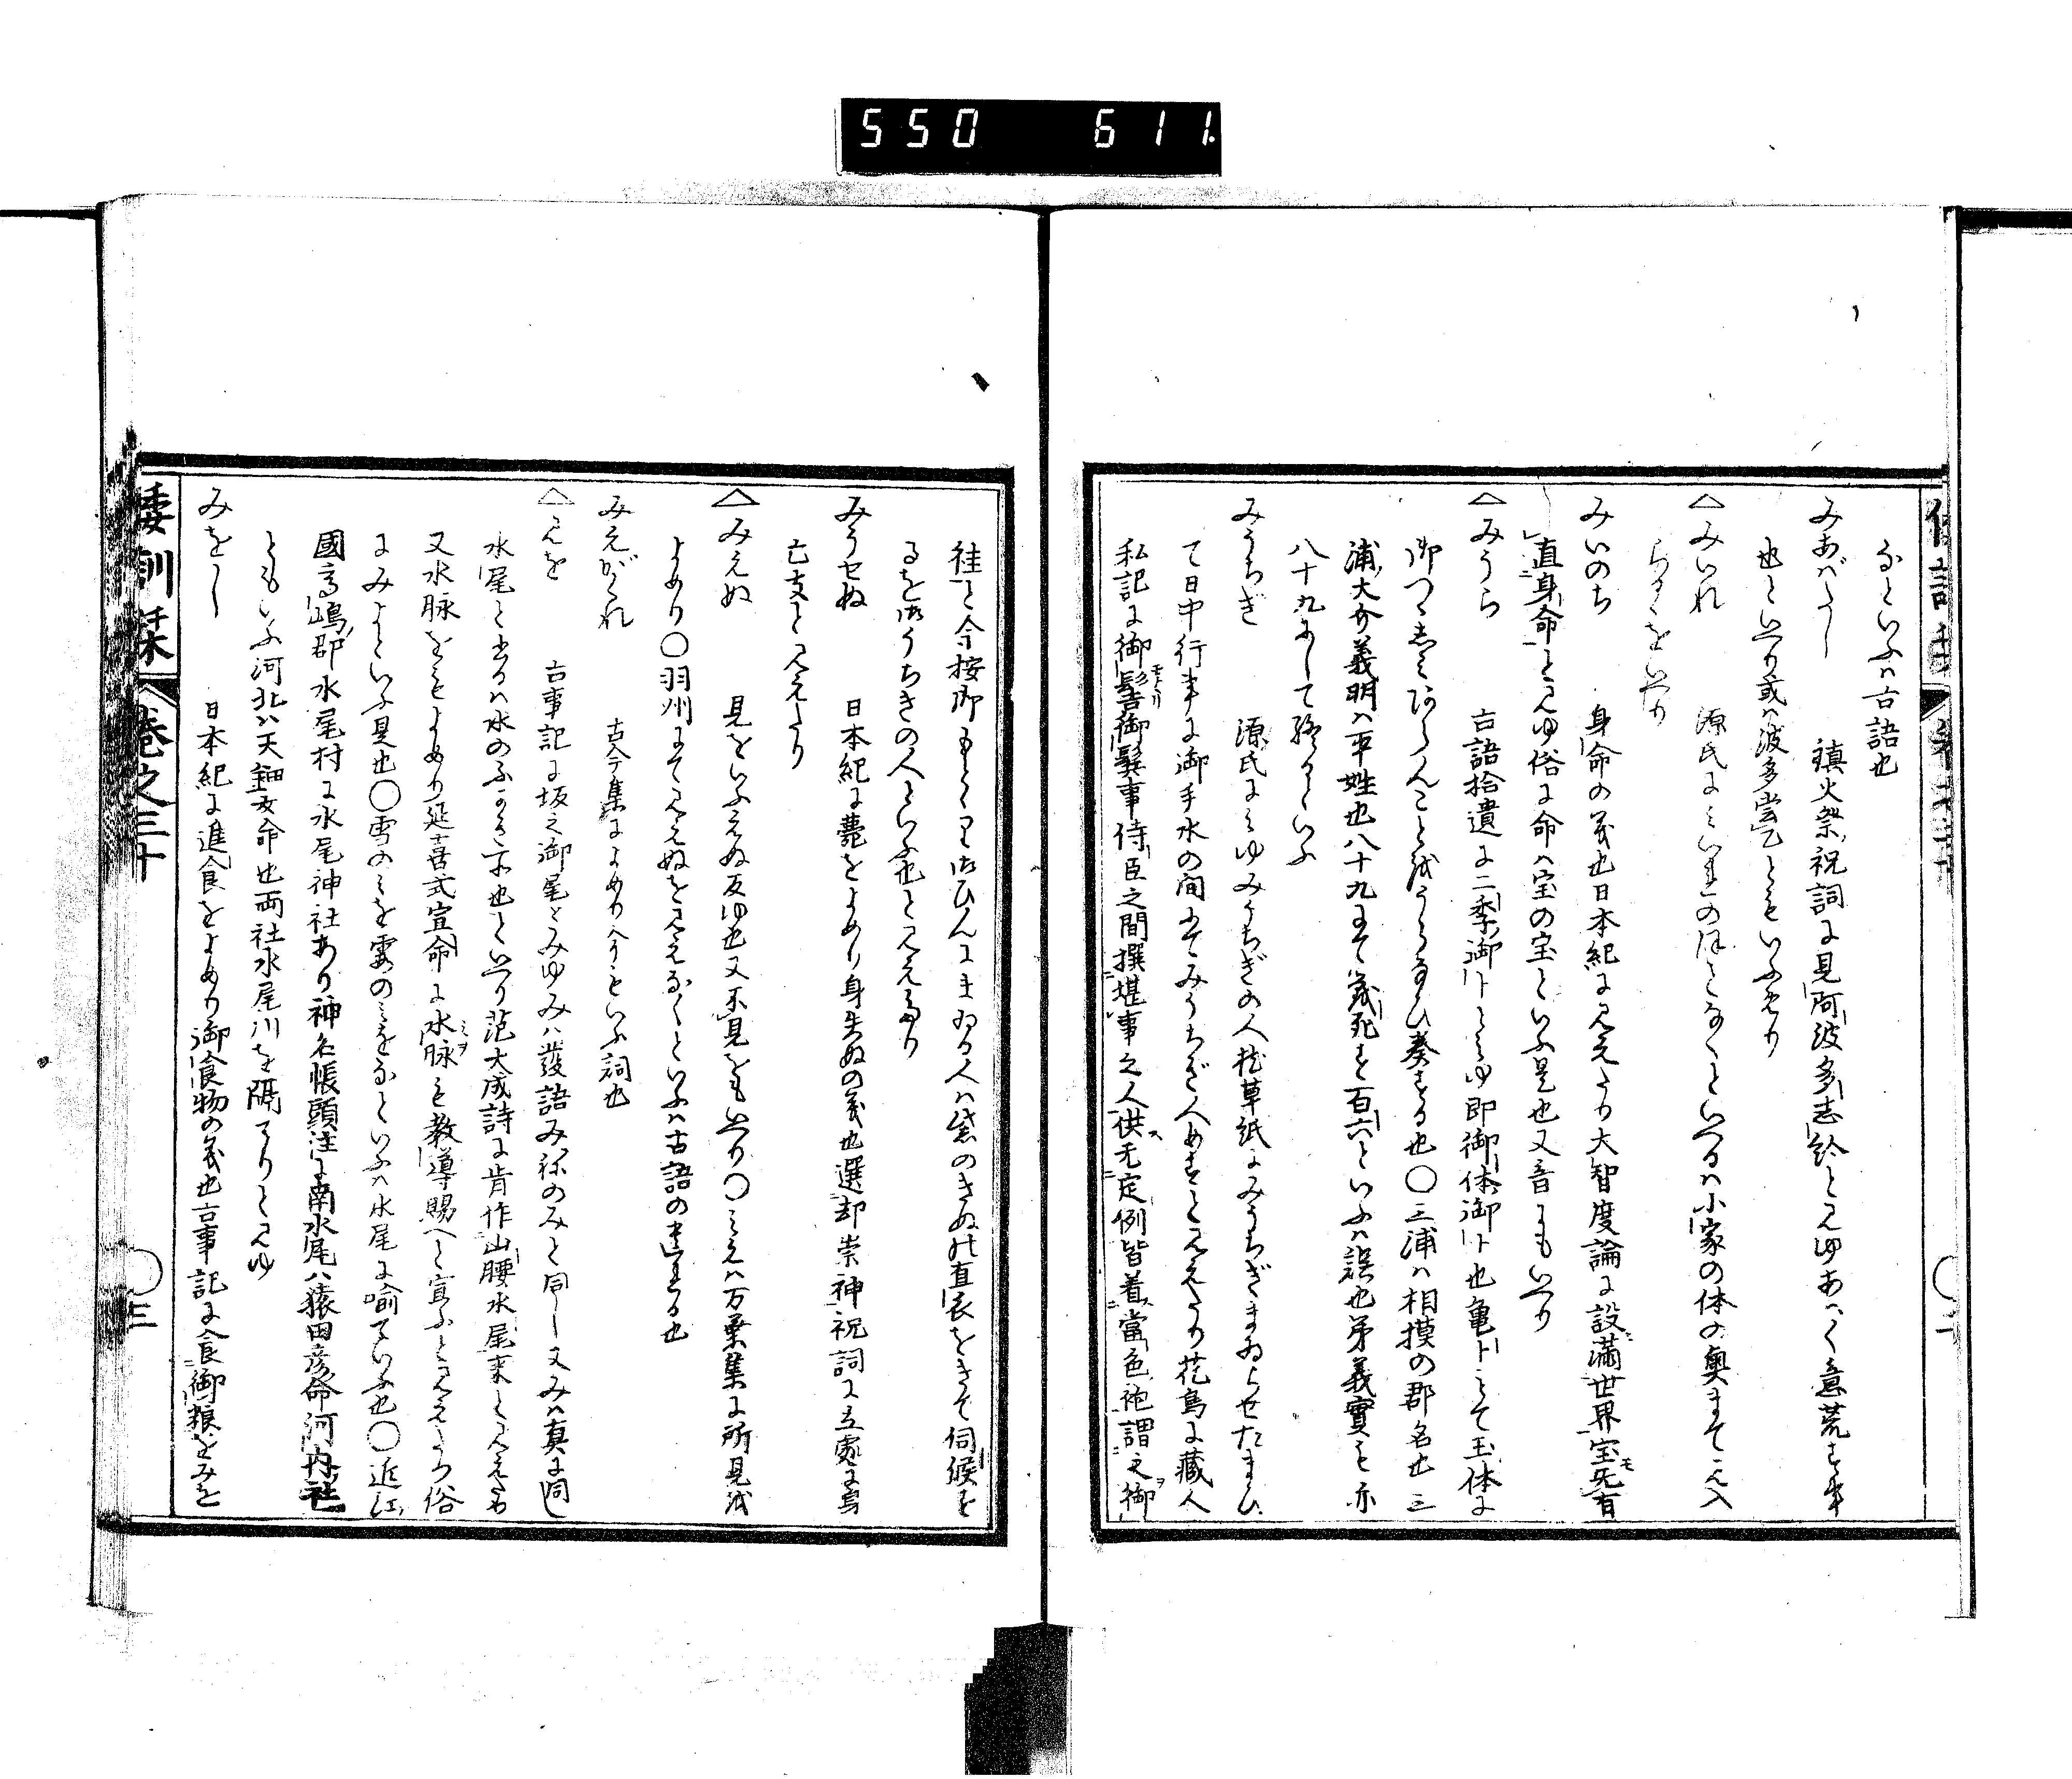 550 611
なといふハ古語也
みあがたし 鎮火祭祝詞に見阿波多志給と見ゆあハく意荒す事
也といへり或ハ波多嘗ともいふめり
△みいれ 源氏にみいれのほとなくといへるハ小家の体の奥まて見入
らるゝをいへり
みいのち 身命の義也日本紀に見えたり大智度論に設満世界宝旡有
直身命と見ゆ俗に命ハ宝の宝といふ是也又音にもいへり
△みうら 古語拾遺に二季御卜とみゆ即御体御卜也亀卜して玉体に
御つゝしみあらんことをうらなひ奏する也〇三浦ハ相摸の郡名也三
浦大介義明ハ平姓也八十九にて義死す百六といふハ誤也弟義實も亦
八十九にして終るといふ
みうちぎ 源氏にみゆみうちぎの人枕草紙にみうちぎまゐらせたまひ
て日中行事に御手水の間にてみうちぎ人めすと見えたり花鳥に藏人
私記に御髻御鬓事侍臣之間撰堪事之人供无定例皆着當色袍謂之御
袿と今按御もとゝり御ひんにまゐる人ハ袋のきぬの直衣をきて伺候す
るを御うちきの人といふ也と見えたり
みうせぬ 日本紀に薨をよめり身失ぬの義也遷却崇神祝詞に立處に身
亡支と見えたり
△みえぬ 見をいふえぬ反ゆ也又不見をもいへり〇みえハ万葉集に所見を
よめり〇羽州にて見えぬを見えなくといふハ古語の遺れる也
みえがくれ 古今集によめり今もいふ詞也
△みを 古事記に坂之御尾とみゆみハ發語みねのみと同し又みハ真に同し
水尾と書るハ水のふかき所也といへり范大成詩に肯作山腰水尾来と見えたり
又水脉をもよめり延喜式宣命に水脉も教導賜へと宣ふと見えたり俗
にみよといふ是也〇雪のみを雲のみをなといふハ水尾に喩ていふ也〇近江
國高嶋郡水尾村に水尾神社あり神名帳頭注に南水尾ハ猿田彦命河内社
ともいふ河北ハ天鈿女命也両社水尾川を隔てりと見ゆ
みをし 日本紀に進食をよめり御食物の義也古事記に食御粮をみを
倭訓栞 巻之三十 〇三